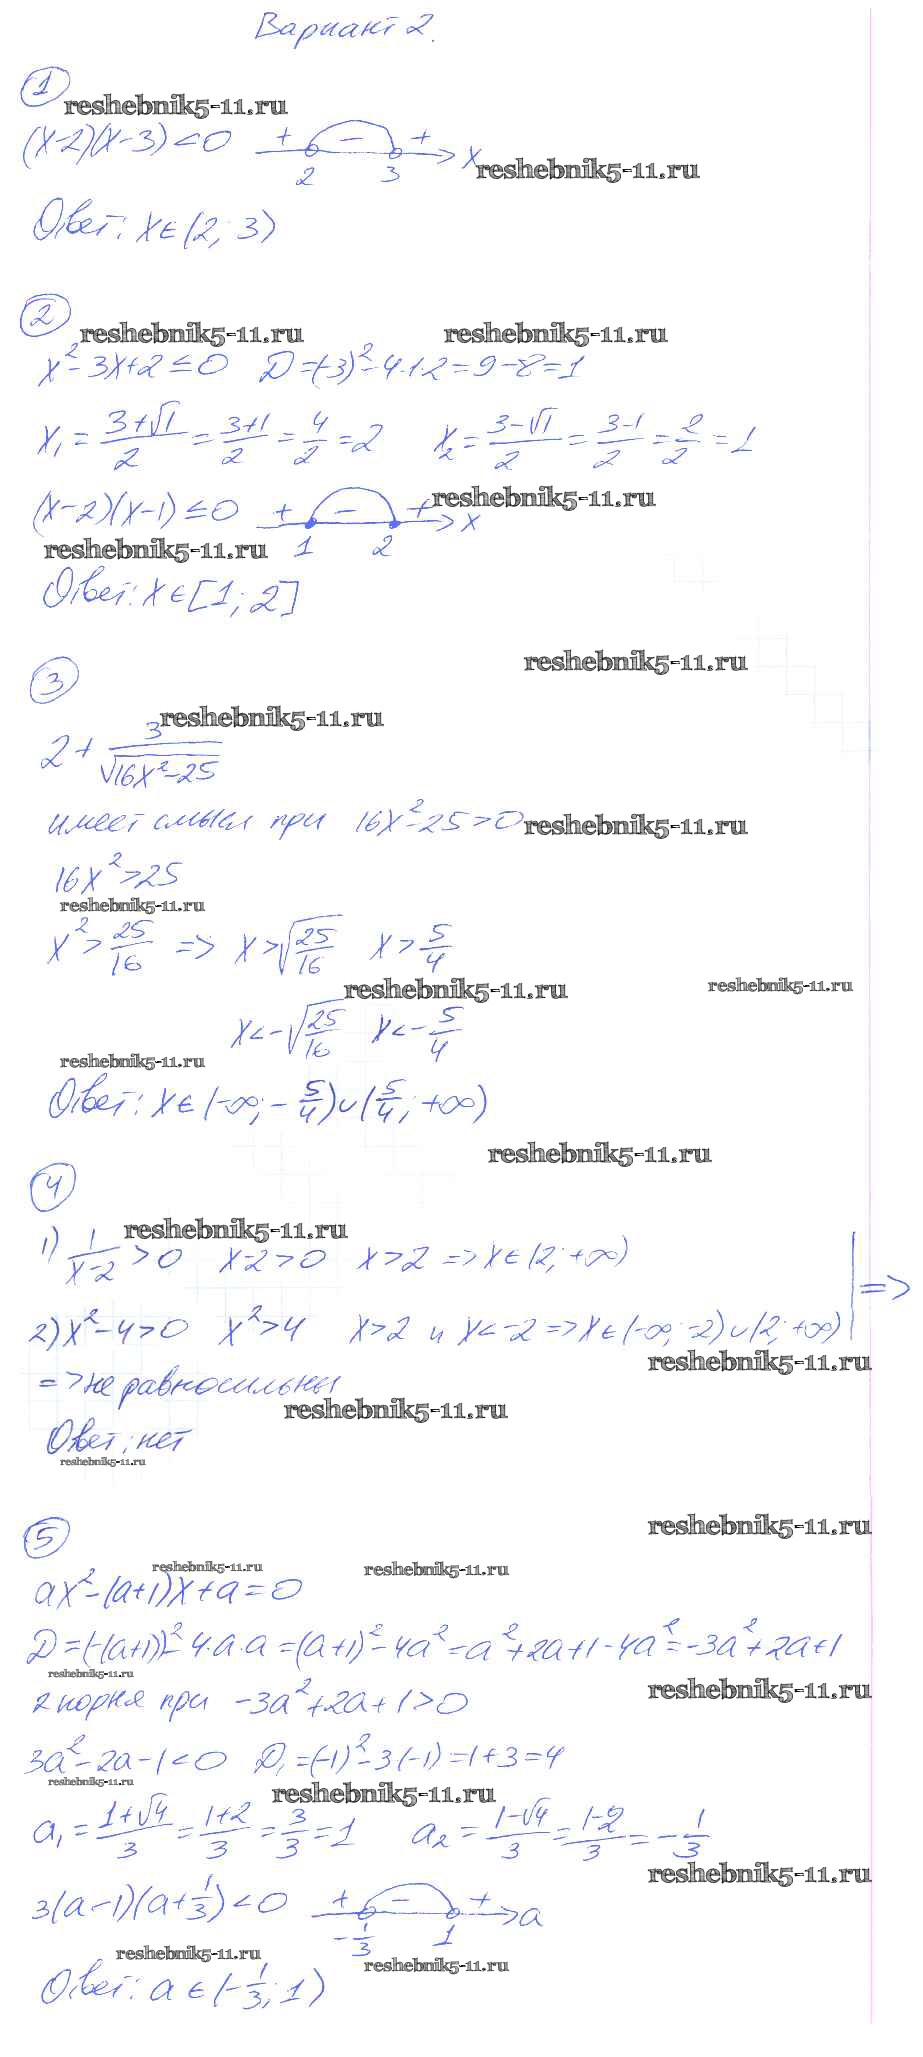 Вариант 2.
1
reshebnik5-11.ru
(x-2)(x-3)<0 + - + x
2 3
reshebnik5-11.ru
Ответ: x∈(2; 3)
2
reshebnik5-11.ru reshebnik5-11.ru
x²-3x+2≤0 D=(-3)²-4·1·2=9-8=1
x₁=(3+√1)/2=(3+1)/2=4/2=2 x₂=(3-√1)/2=(3-1)/2=2/2=1
reshebnik5-11.ru
(x-2)(x-1)≤0 + - + x
reshebnik5-11.ru 1 2
Ответ: x∈[1; 2]
reshebnik5-11.ru
3
reshebnik5-11.ru
2+3/√(16x²-25)
имеет смысл при 16x²-25>0
reshebnik5-11.ru
16x²>25
reshebnik5-11.ru
x²>25/16 => x>√(25/16) x>5/4
reshebnik5-11.ru reshebnik5-11.ru
x<-√(25/16) x<-5/4
reshebnik5-11.ru
Ответ: x∈(-∞; -5/4)∪(5/4; +∞)
reshebnik5-11.ru
4
reshebnik5-11.ru
1) 1/(x-2)>0 x-2>0 x>2 => x∈(2; +∞)
=>
2) x²-4>0 x²>4 x>2 и x<-2 => x∈(-∞; -2)∪(2; +∞)
reshebnik5-11.ru
=> не равносильны
reshebnik5-11.ru
Ответ: нет
reshebnik5-11.ru
reshebnik5-11.ru
5
reshebnik5-11.ru reshebnik5-11.ru
ax²-(a+1)x+a=0
D=(-(a+1))²-4·a·a=(a+1)²-4a²=a²+2a+1-4a²=-3a²+2a+1
reshebnik5-11.ru
reshebnik5-11.ru
2 корня при -3a²+2a+1>0
3a²-2a-1<0 D₁=(-1)²-3(-1)=1+3=4
reshebnik5-11.ru
reshebnik5-11.ru
a₁=(1+√4)/3=(1+2)/3=3/3=1 a₂=(1-√4)/3=(1-2)/3=-1/3
reshebnik5-11.ru
3(a-1)(a+1/3)<0 + - + a
-1/3 1
reshebnik5-11.ru reshebnik5-11.ru
Ответ: a∈(-1/3; 1)